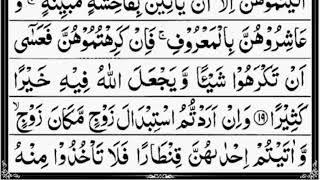 اٰتَیْتُمُوْهُنَّ اِلَّاۤ اَنْ یَّاْتِیْنَ بِفَاحِشَةٍ مُّبَیِّنَةٍ ۚ وَ
عَاشِرُوْهُنَّ بِالْمَعْرُوْفِ ۚ فَاِنْ كَرِهْتُمُوْهُنَّ فَعَسٰۤی
اَنْ تَكْرَهُوْا شَیْـًٔا وَّیَجْعَلَ اللّٰهُ فِیْهِ خَیْرًا
كَثِیْرًا ۝۱۹ وَاِنْ اَرَدْتُّمُ اسْتِبْدَالَ زَوْجٍ مَّكَانَ زَوْجٍ ۙ
وَّ اٰتَیْتُمْ اِحْدٰىهُنَّ قِنْطَارًا فَلَا تَاْخُذُوْا مِنْهُ